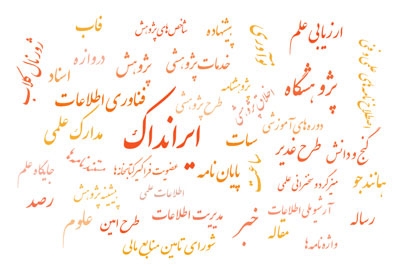 ارزیابی علم
پیشنهاده
شاخص‌های پژوهش
فاب
ژورنال کلاب
نوآوری
خدمات پژوهشی
پژوهش
دروازه
اسناد
پژوهشگاه
پژوهشنامه
طرح پژوهشی
فناوری اطلاعات
ایرانداک
مدارک علمی
دوره‌های آموزشی
گنج و دانش
طرح غدیر
سات
پایان نامه
عضویت فراگیر کتابخانه‌ها
جایگاه علم
همانندجو
میزگرد و سخنرانی علمی
اطلاعات علمی
پیشینه پژوهش
رصد
آرشیو ملی اطلاعات
رساله
مقاله
خبر
مدیریت اطلاعات
طرح امین
علوم
واژه نامه‌ها
شورای تامین منابع مالی